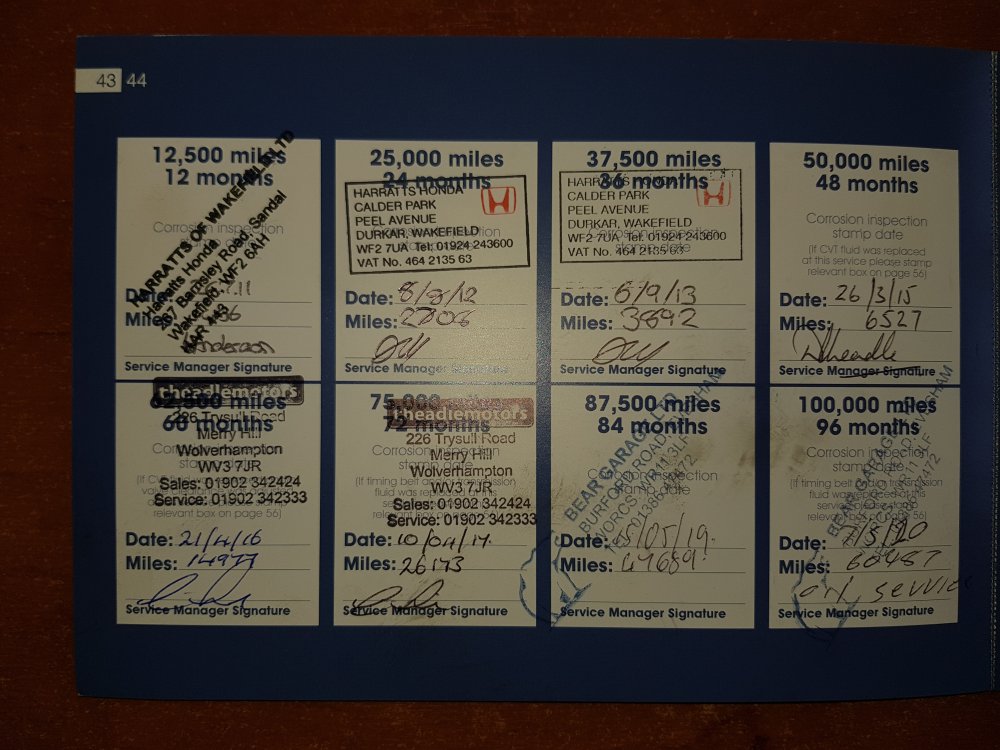 43 44
12,500 miles
12 months
HARRATTS OF WAKEFIELD LTD
Harratts Honda
267 Barnsley Road, Sandal
Wakefield, WF2 6AH
Corrosion inspection
Date: .11
Miles: 36
Anderson
Service Manager Signature
25,000 miles
24 months
HARRATTS HONDA
CALDER PARK
PEEL AVENUE
DURKAR, WAKEFIELD
WF2 7UA Tel: 01924 243600
VAT No. 464 2135 63
Date: 8/8/12
Miles: 2706
Service Manager Signature
37,500 miles
36 months
HARRATTS HONDA
CALDER PARK
PEEL AVENUE
DURKAR, WAKEFIELD
WF2 7UA Tel: 01924 243600
VAT No. 464 2135 63
Corrosion inspection
stamp date
Date: 6/9/13
Miles: 3892
Service Manager Signature
50,000 miles
48 months
Corrosion inspection
stamp date
(If CVT fluid was replaced
at this service please stamp
relevant box on page 56)
Date: 26/3/15
Miles: 6527
Service Manager Signature
62,500 miles
60 months
theadlemotors
226 Trysull Road
Merry Hill
Wolverhampton
WV3 7JR
Sales: 01902 342424
Service: 01902 342333
relevant box on page 56)
Date: 21/4/16
Miles: 14977
Service Manager Signature
75,000
72 months
theadlemotors
226 Trysull Road
Merry Hill
Wolverhampton
WV3 7JR
Sales: 01902 342424
Service: 01902 342333
Date: 10/04/17.
Miles: 26173
Service Manager Signature
87,500 miles
84 months
BEAR GARAGE LTD
BURFORD ROAD, EVESHAM
WORCS. WR11 3LF
Corrosion inspection
stamp date
Date: /05/19.
Miles: 47689
Service Manager Signature
100,000 miles
96 months
BEAR GARAGE
Corrosion inspection
stamp date
relevant box on page 56)
Date: 7/5/20
Miles: 60487
oil service
Service Manager Signature